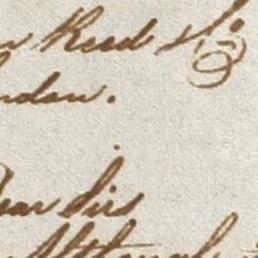 Reed
ndon.
ear Sirs
Although